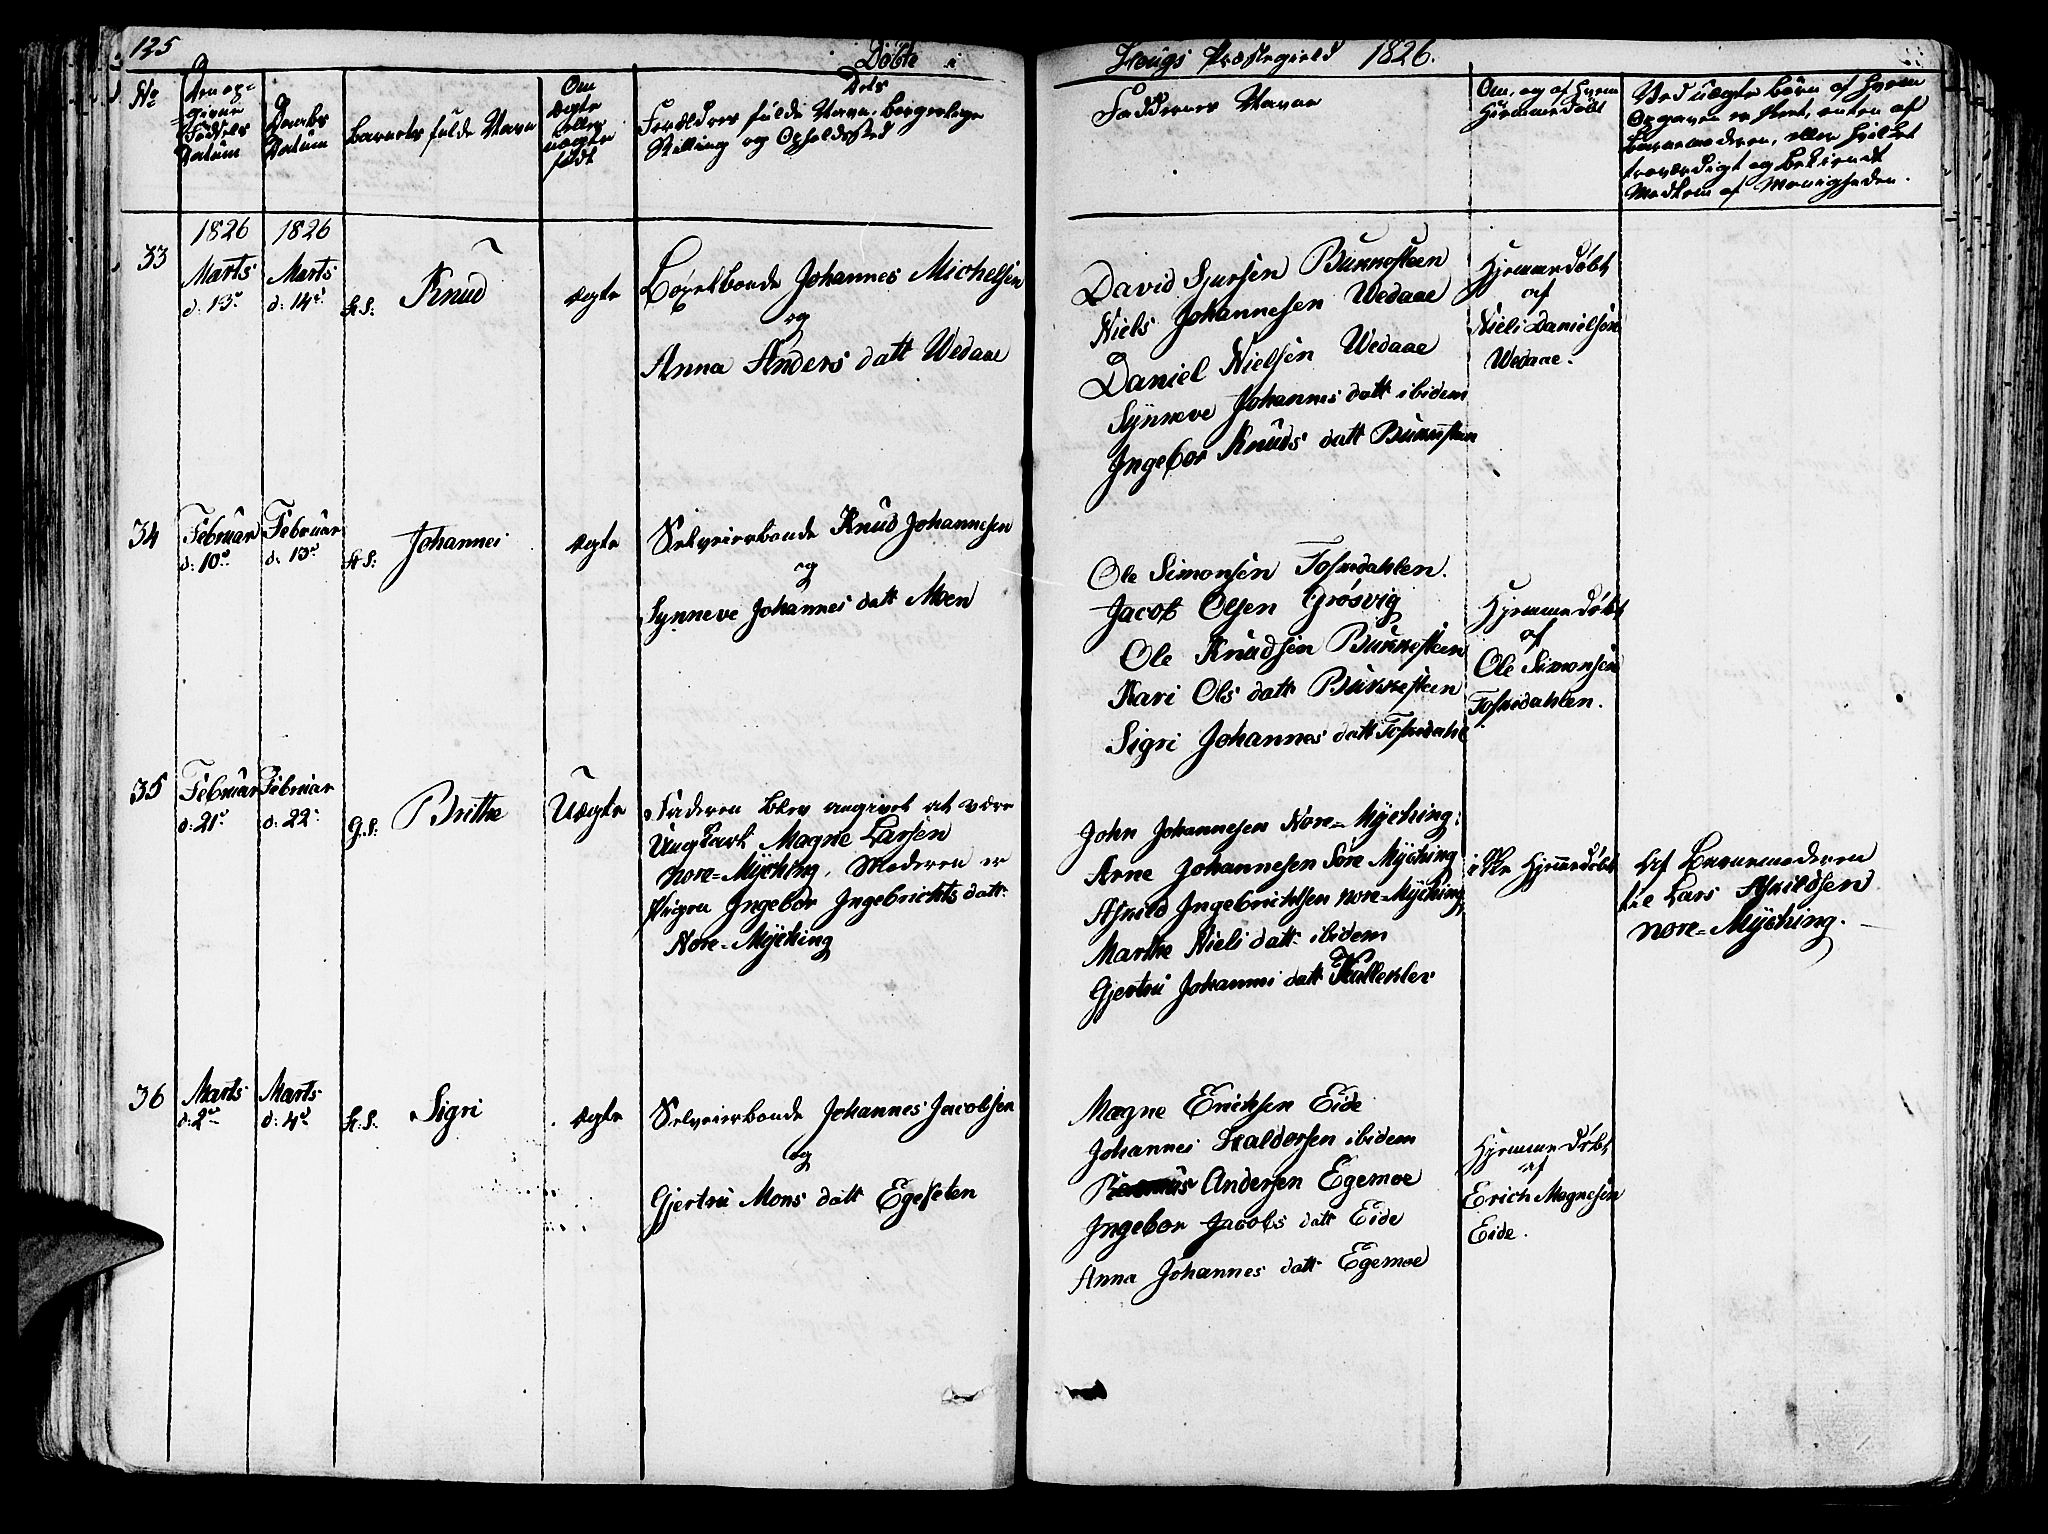 125
Døbte i Hougs Præstegield 1826.
No
Den op-
givne
Fødsels
Datum
Daabs
Datum
Barnets fulde Navn
Om
ægte
eller
uægte
født
Dets
Forældres fulde Navn, borgerlige
Stilling og Opholdssted
Faddernes Navne
Om, og af hvem
Hiemmedøbt
Ved uægte børn af hvem
Opgaven er skeet, enten af
Barnemoderen, eller hvilket
troværdigt og bekiendt
Medlem af Menigheden.
33
1826
Marts
d: 13de
1826
Marts
d: 14de
Knud
ægte
Bøxelbonde Johannes Michelsen
og
Anna Anders datt Wedaae
David Sjursen Bukkesteen
Niels Johannesen Wedaae
Daniel Nielsen Wedaae
Synneve Johannes datt ibidem
Ingebor Knuds datt Bukkesteen
Hjemmedøbt
af
Niels Danielsen
Wedaae.
34
Februar
d: 10de
Februar
d: 13de
Johannes
ægte
Selveierbonde Knud Johannesen
og
Synneve Johannes datt Moen
Ole Simonsen Foskedahlen.
Jacob Olsen Grøsvig
Ole Knudsen Bukkesteen
Kari Ols datt Bukkesteen
Sigri Johannes datt Foskedahl
Hjemmedøbt
af
Ole Simonsen
Foskedahlen.
35
Februar
d: 21de
Februar
d: 22de
Brithe
Uægte
Faderen blev angivet at være
Ungkarl Magne Larsen
Nore=Mÿching, Moderen er
Pigen Ingebor Ingebrichts datt:
Nore=Mÿching
John Johannesen Nore=Mÿching:
Arne Johannesen Søre Mÿching
Askild Ingebrichtsen Nore=Mÿching
Marthe Niels datt: ibidem
Gjertru Johannes datt Kallekler
ikke Hjemmedøbt
Af Barnemoderen
til Lars Askildsen
Nore=Mÿching.
36
Marts
d: 2de
Marts
d: 4de
Sigri
ægte
Selveierbonde Johannes Jacobsen
og
Gjertru Mons datt Egeseten
Magne Erichsen Eide
Johannes Haldorsen ibidem
Rasmus Andersen Egemoe
Ingebor Jacobs datt Eide
Anna Johannes datt Egemoe
Hjemmedøbt
af
Erich Magnesen
Eide.